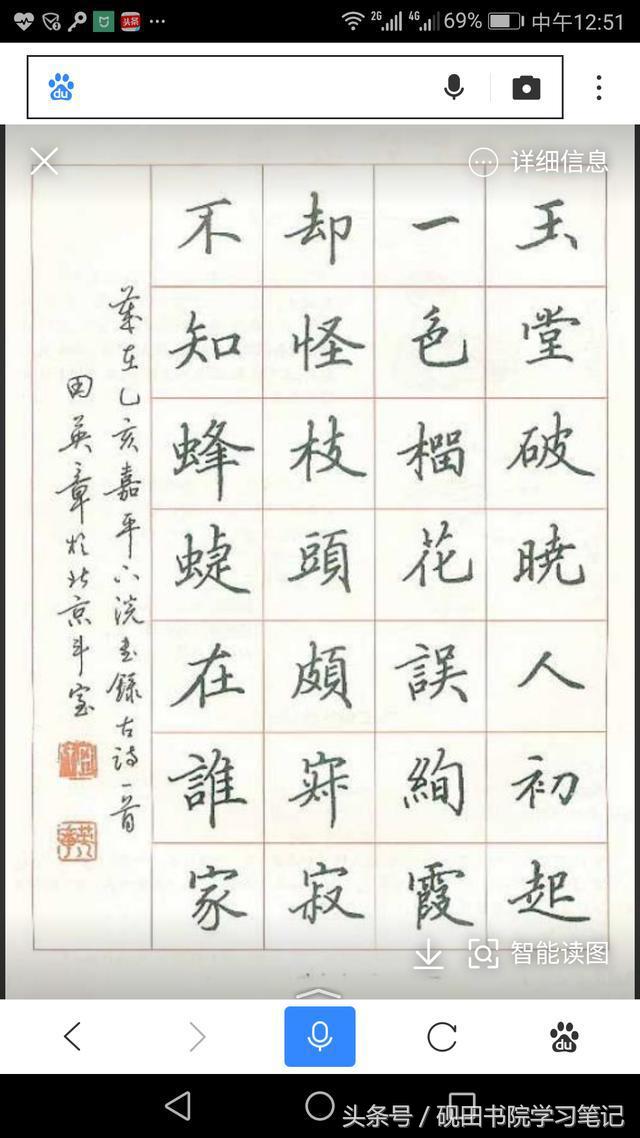 头条
2G 4G 69% 中午12:51
du
详细信息
玉堂破曉人初起
一色榴花誤絢霞
却怪枝頭頗寂寂
不知蜂蜨在誰家
歲在乙亥嘉平下浣書錄古詩一首
田英章於北京斗室
智能读图
du
头条号 / 砚田书院学习笔记